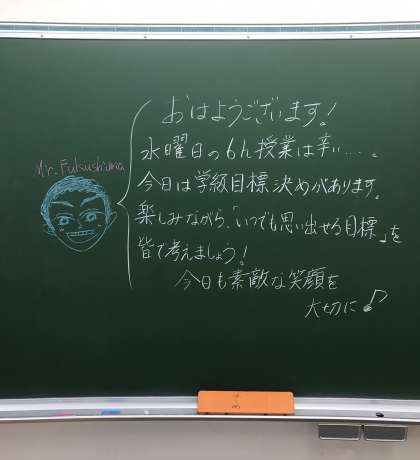 Mr. Fukushima
おはようございます!
水曜日の6h授業は辛い….。
今日は学級目標決めがあります。
楽しみながら、「いつでも思い出せる目標」を
皆で考えましょう!
今日も素敵な笑顔を
大切に♪